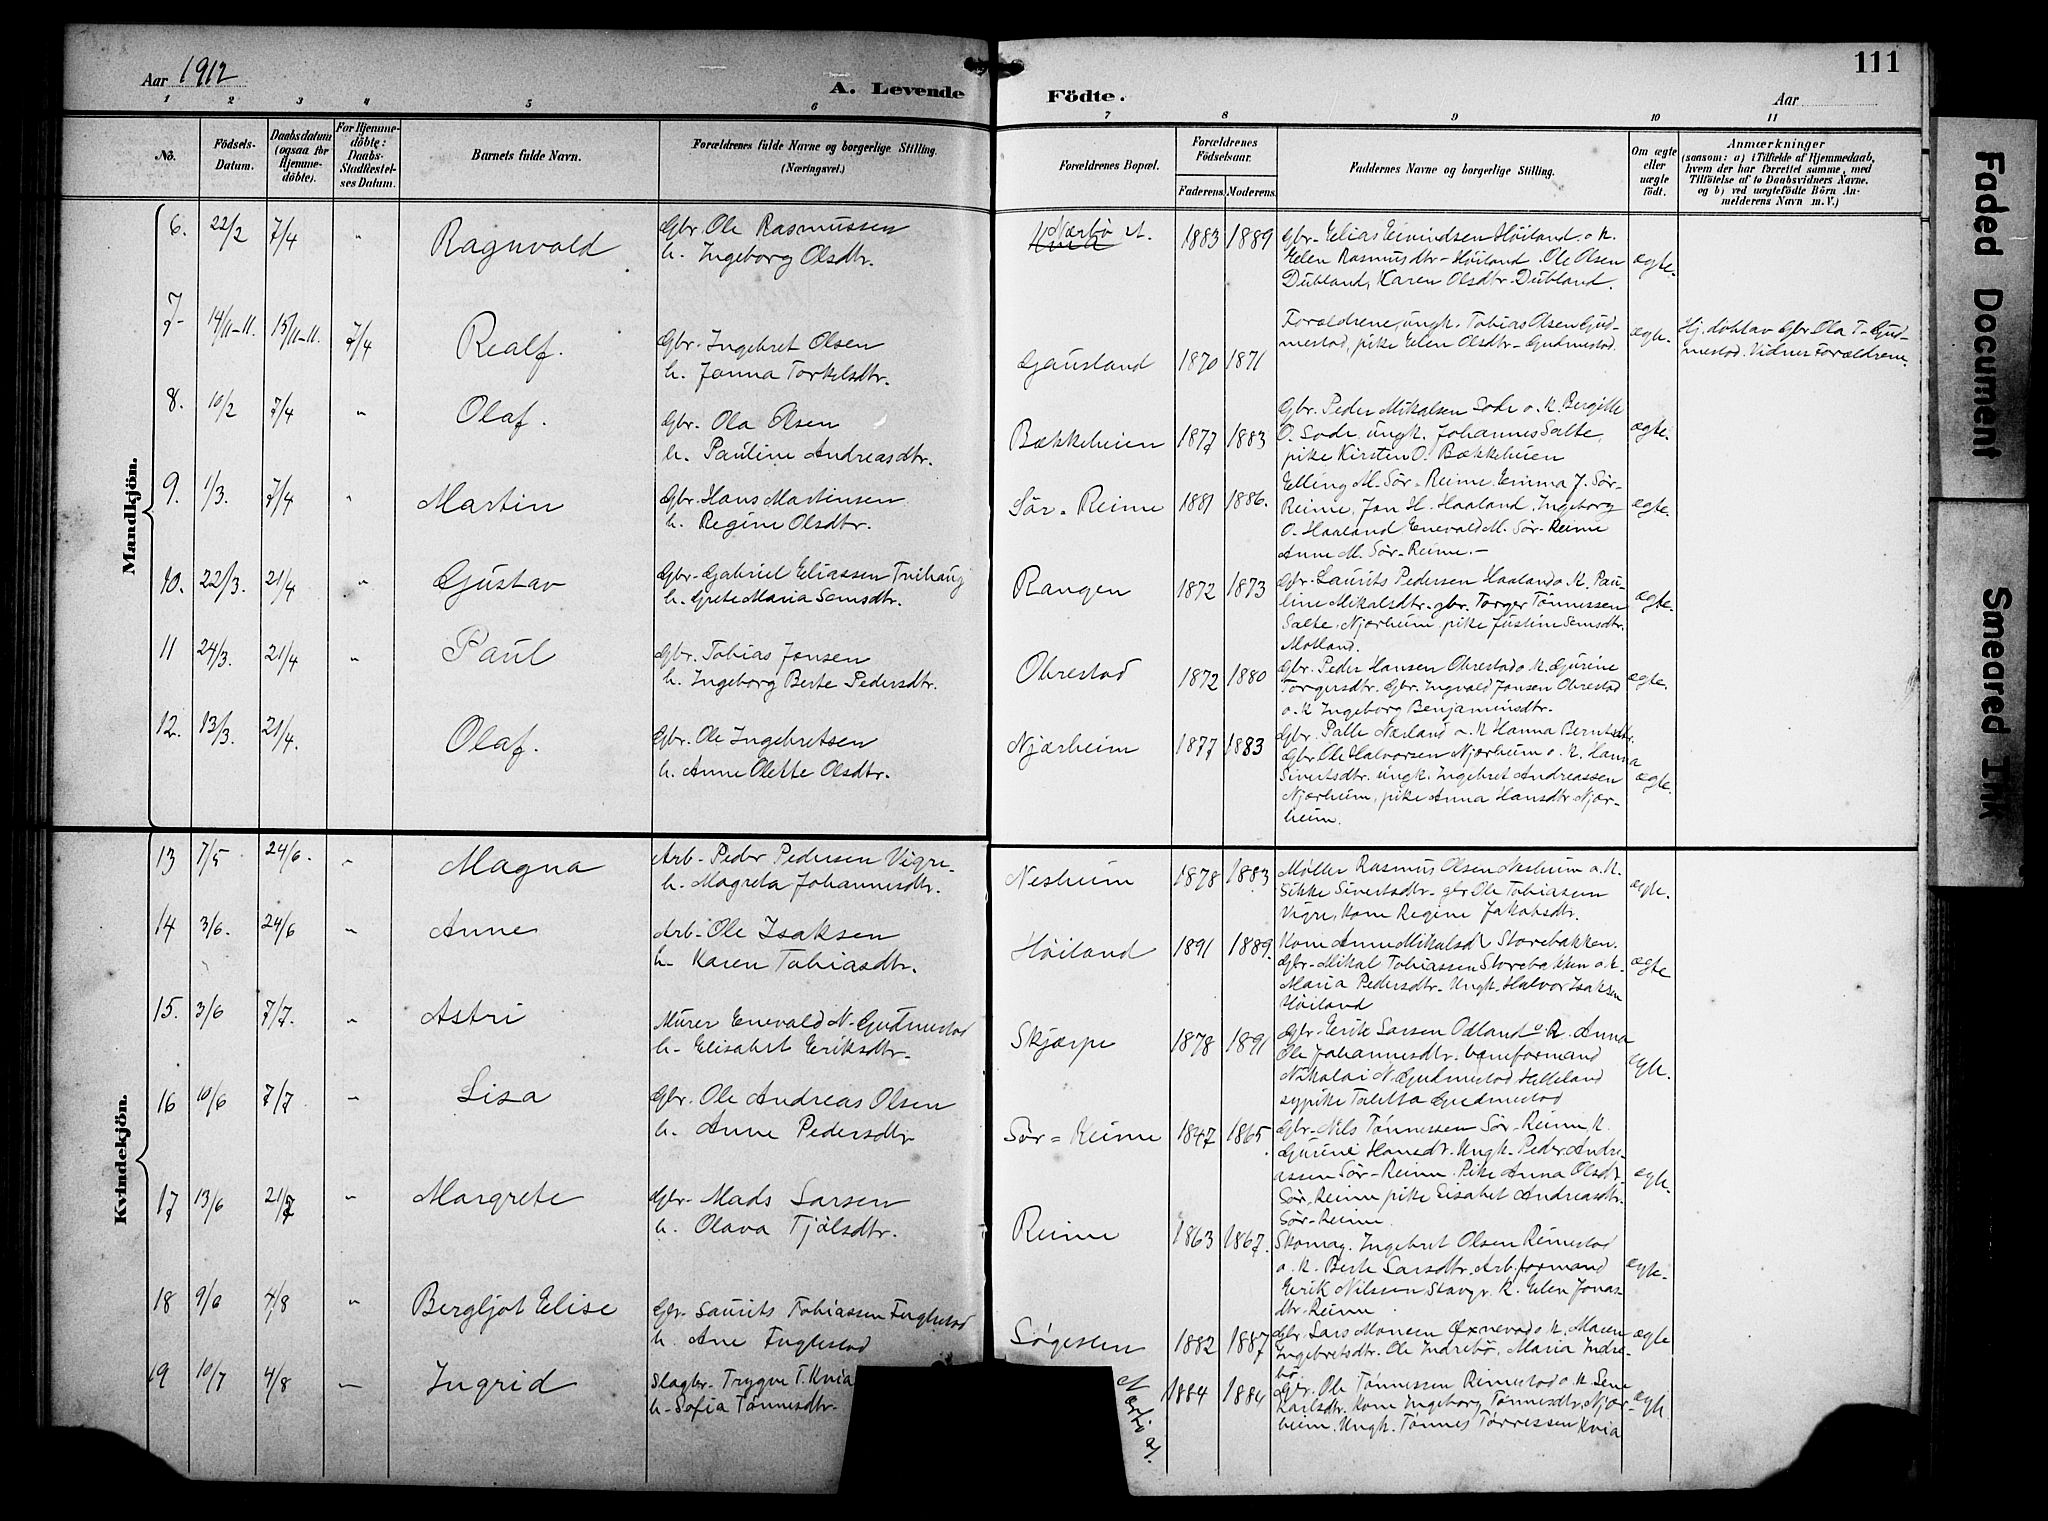 Aar 1912
A. Levende Födte.
111
Aar
1 2 3 4 5 6 7 8 9 10 11
No.
Födsels-Datum.
Daabsdatum (ogsaa for Hjemme-döbte).
For Hjemme-döbte: Daabs-Stadfæstel-ses Datum.
Barnets fulde Navn.
Forældrenes fulde Navne og borgerlige Stilling. (Næringsvei.)
Forældrenes Bopæl.
Forældrenes Födselsaar.
Faderens. Moderens.
Faddernes Navne og borgerlige Stilling.
Om ægte eller uægte födt.
Anmærkninger
(saasom: a) i Tilfælde af Hjemmedaab, hvem der har forrettet samme, med Tilföielse af to Daabsvidners Navne, og b) ved uægtefödte Börn An-melderens Navn m. V.)
Mandkjön.
6. 22/2 7/4 " Ragnvald
Gbr. Ole Rasmussen
h. Ingeborg Olsdtr.
Nærbø st. 1883 1889
Gbr. Elias Eivindsen Høiland o. k.
Elen Rasmusdtr. Høiland. Ole Olsen
Dubland, Karen Olsdtr. Dubland.
ægte.
7. 14/11-11. 15/11-11. 7/4 Realf.
Gbr. Ingebret Olsen
h. Janna Torkelsdtr.
Gausland 1870 1871
Forældrene, ungk. Tobias Olsen Gud-
mestad, pike Elen Olsdtr. Gudmestad.
ægte.
Hj. døbt av Gbr. Ola T. Gud-
mestad. Vidner Forældrene.
8. 10/2 7/4 " Olaf.
Gbr. Ola Olsen
h. Pauline Andreasdtr.
Bækkeheien 1877 1883
Gbr. Peder Mikalsen Sode o. k. Bergitte
O. Sode, ungk. Johannes Salte,
pike Kirsten O. Bækkeheien
ægte.
9. 1/3. 7/4 " Martin
Gbr. Hans Martinsen
h. Regine Olsdtr.
Sør-Reime 1881 1886.
Elling M. Sør-Reime. Emma J. Sør-
Reime, Jan H. Haaland, Ingeborg
O. Haaland, Enevald M. Sør-Reime
Anne M. Sør-Reime.-
ægte.
10. 22/3. 21/4 " Gustav
Gbr. Gabriel Eliassen Tvihaug
h. Grete Maria Samsdtr.
Rangen 1872 1873
Gbr. Laurits Pedersen Haaland o. k. Pau-
line Mikalsdtr. gbr. Torger Tønnessen
Salte, Njærheim, pike Justine Samsdtr.
Motland.
ægte.
11 24/3. 21/4 " Paul
Gbr. Tobias Jonsen
h. Ingeborg Berte Pedersdtr.
Obrestad 1872 1880
Gbr. Peder Hansen Obrestad o. k. Gurine
Torgersdtr. Gbr. Ingvald Jonsen Obrestad
o. k Ingeborg Benjaminsdtr.
ægte.
12. 13/3. 21/4. Olaf.
Gbr. Ole Ingebretsen
h. Anne Olette Olsdtr.
Njærheim 1877 1883
Gbr. Palle Nærland o. k Hanna Berntsdtr.
Gbr. Ole Halvorsen Njærheim o. k. Hanna
Sivertsdtr. ungk. Ingebret Andreassen
Njærheim, pike Anna Hansdtr Njær-
heim.
ægte.
Kvindekjön.
13 7/5 24/6. " Magna
Arb. Peder Pedersen Vigre
h. Magreta Johannesdtr.
Nesheim 1878 1883
Møller Rasmus Olsen Nesheim o. k.
Sikke Sivertsdtr. gbr Ole Tobiassen
Vigre, Kone Regine Jakobsdtr.
ægte.
14 3/6. 24/6 " Anne
Arb. Ole Isaksen
h. Karen Tobiasdtr.
Høiland 1891 1889.
Kone Anne Mikalsd. Storebakken.
Gbr. Mikal Tobiassen Storebakken o. k.
Maria Pedersdtr. Ungk. Halvor Isaksen
Høiland
ægte
15. 3/6 7/7. " Astri
Murer Enevald N. Gudmestad
h. Elisabet Eriksdtr.
Skjærpe 1878 1891
Gbr. Erik Larsen Odland o. k. Anna
Ole Johannesdtr. baneformand
Nikolai N. Gudmestad Helleland
sypike Taletta Gudmestad
ægte.
16 10/6 7/7 " Lisa
Gbr. Ole Andreas Olsen
h. Anne Pedersdtr
Sør=Reime 1847 1865
Gbr. Nils Tønnessen Sør-Reime k.
Gurine Hansdtr. Ungk. Peder Andre-
assen Sør-Reime. Pike Anna Olsdtr
Sør-Reime pike Lisabet Andreasdtr.
Sør-Reime.
ægte.
17 13/6 21/7 " Margrete
Gbr. Mads Larsen
h. Olava Tjølsdtr.
Reime 1863 1867.
Skomag. Ingebret Olsen Reimestad
o. k. Berte Larsdtr. Arb.formand
Erik Nilssen Stavgr. k. Elen Jonas-
dtr. Reime
ægte.
18 9/6 4/8 " Bergljot Elise
Gbr. Laurits Tobiassen Fuglestad
h. Ane Fuglestad
Søgesten 1882 1887
Gbr. Lars Monsen Øxnevad o. k. Maren
Ingebretsdtr. Ole Indrebø, Maria Indre-
bø
ægte
19 10/7 4/8 - Ingrid
Slagter Trygve T. Kvia
h. Sofia Tønnesdtr.
Nærbø st. 1884 1884
Gbr. Ole Tønnessen Reimestad o. k. Lene
Karlsdtr. Kone Ingeborg Tønnesdtr. Njær-
heim. Ungk. Tønnes Tørressen Kvia
ægte
Faded Document
Smeared Ink